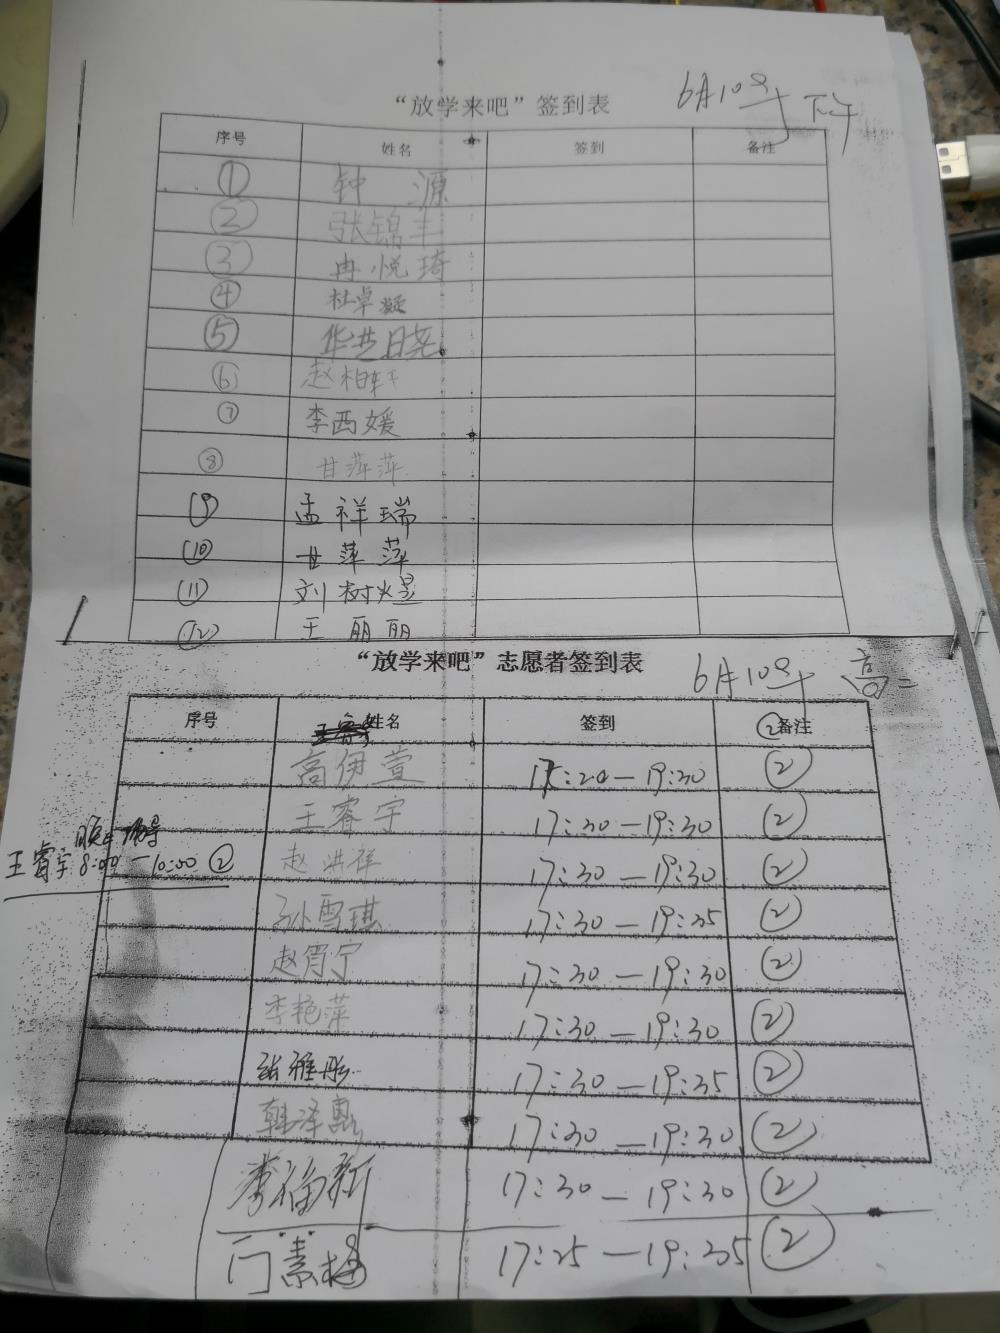 “放学来吧”签到表 6月10号 下午
序号 姓名 签到 备注
① 钟源
② 张锦丰
③ 冉悦琦
④ 杜卓凝
⑤ 华芸晓
⑥ 赵柏轩
⑦ 李西媛
⑧ 甘萍萍
(9) 孟祥瑞
(10) 甘萍萍
(11) 刘树煜
(12) 王丽丽
“放学来吧”志愿者签到表 6月10号 高二
序号 姓名 签到 ②备注
高伊萱 17:20—19:30 ②
王睿宇 17:30—19:30 ②
王睿宇 8:00—10:00 ②
赵洪祥 17:30—19:30 ②
孙雪琪 17:30—19:35 ②
赵胥宁 17:30—19:30 ②
李艳萍 17:30—19:30 ②
张雅彤 17:30—19:35 ②
韩泽惠 17:30—19:30 ②
李福新 17:30—19:30 ②
门素梅 17:25—19:35 ②